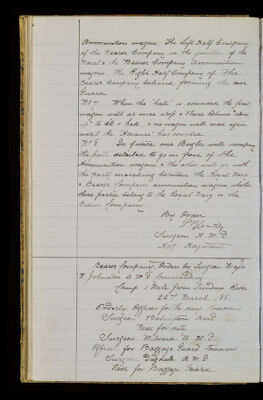 Ammunition wagons. The Left Half Company
of the Bearer Company in the junction of the
Naval & the Bearer Company ammunition
wagons. The Right Half Company of the
Bearer Company behind forming the rear
Guard.
No 7 When the "halt" is sounded the first
wagon will at once stop & those behind "close
up" to it & halt, & no wagon will move again
until the "Advance" has sounded.
No 8 In future one Bugler will accompany
the party detailed to go in front of the
Ammunition wagons & the other will go with
the party marching between the Royal Navy
& Bearer Company ammunition wagons whether
these parties belong to the Royal Navy or the
Bearer Company
By Order
Surgeon A.M.D
Act Adjutant
Bearer Company. Orders by Surgeon Major
W Johnston A.M.D Commanding
Camp 1 Mile from River
22nd March 188
Orderly Officer for the day tomorrow
Surgeon A.M.D
Next for duty
Surgeon A.M.D.
Officer for Baggage Guard Tomorrow
Surgeon Dugdale A.M.D
Next for Baggage Guard